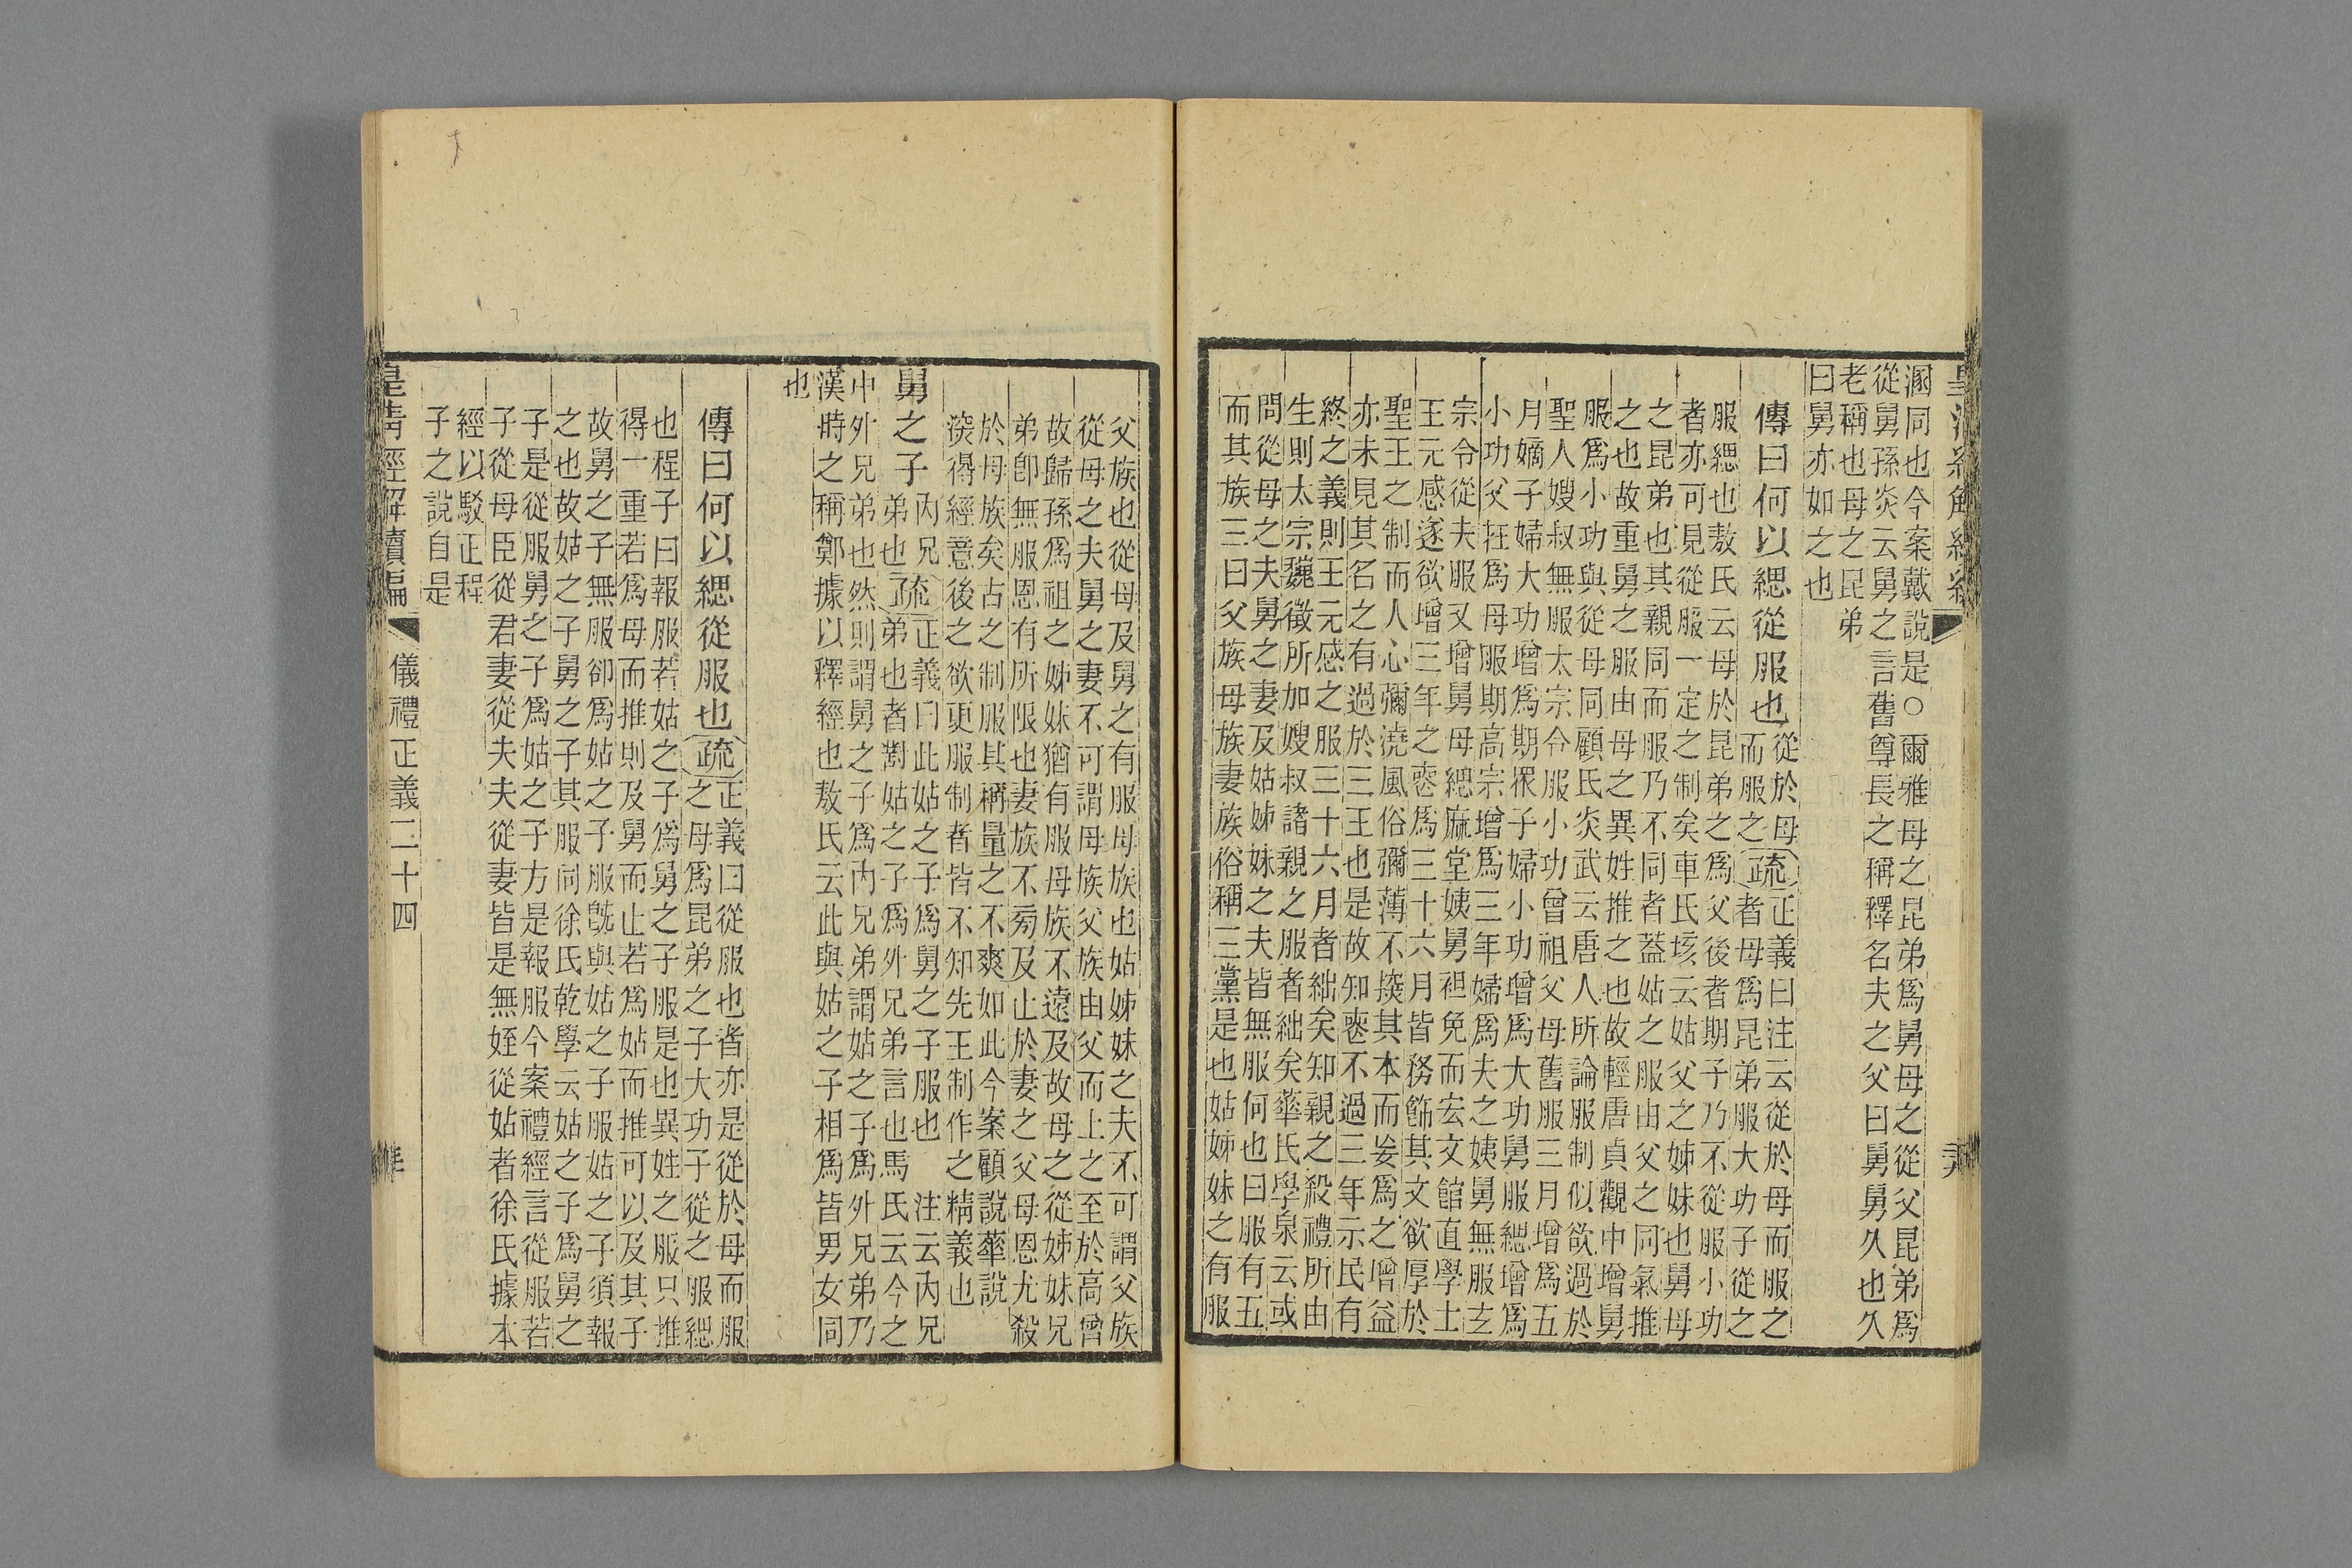 溷同也今案戴說是○爾雅母之昆弟爲舅母之從父昆弟爲
從舅孫炎云舅之言舊尊長之稱釋名夫之父曰舅舅久也久
老稱也母之昆弟
曰舅亦如之也
傳曰何以緦從服也
從於母
而服之
疏
正義曰注云從於母而服之
者母爲昆弟服大功子從之
服緦也敖氏云母於昆弟之爲父後者期子乃不從服小功
者亦可見從服一定之制矣車氏垓云姑父之姊妹也舅母
之昆弟也其親同而服乃不同者蓋姑之服由父之同氣推
之也故重舅之服由母之異姓推之也故輕唐貞觀中增舅
服爲小功與從母同顧氏炎武云唐人所論服制似欲過於
聖人嫂叔無服太宗令服小功曾祖父母舊服三月增爲五
月嫡子婦大功增爲期眾子婦小功增爲大功舅服緦增爲
小功父在爲母服期高宗增爲三年婦爲夫之姨舅無服玄
宗令從夫服又增舅母緦麻堂姨舅袒免而宏文館直學士
王元感遂欲增三年之喪爲三十六月皆務飾其文欲厚於
聖王之制而人心彌澆風俗彌薄不揆其本而妄爲之增益
亦未見其名之有過於三王也是故知喪不過三年示民有
終之義則王元感之服三十六月者絀矣知親親之殺禮所由
生則太宗魏徵所加嫂叔諸親之服者絀矣華氏學泉云或
問從母之夫舅之妻及姑姊妹之夫皆無服何也曰服有五
而其族三曰父族母族妻族俗稱三黨是也姑姊妹之有服
父族也從母及舅之有服母族也姑姊妹之夫不可謂父族
從母之夫舅之妻不可謂母族父族由父而上之至於高曾
故歸孫爲祖之姊妹猶有服母族不遠及故母之從姊妹兄
弟卽無服恩有所限也妻族不旁及止於妻之父母恩尤殺
於母族矣古之制服其稱量之不爽如此今案顧說華說
深得經意後之欲更服制者皆不知先王制作之精義也
舅之子
內兄
弟也
疏
正義曰此姑之子爲舅之子服也　注云內兄
弟也者對姑之子爲外兄弟言也馬氏云今之
中外兄弟也然則謂舅之子爲內兄弟謂姑之子爲外兄弟乃
漢時之稱鄭據以釋經也敖氏云此與姑之子相爲皆男女同
也
傳曰何以緦從服也
疏
正義曰從服也者亦是從於母而服
之母爲昆弟之子大功子從之服緦
也程子曰報服若姑之子爲舅之子服是也異姓之服只推
得一重若爲母而推則及舅而止若爲姑而推可以及其子
故舅之子無服卻爲姑之子服旣與姑之子服姑之子須報
之也故姑之子舅之子其服同徐氏乾學云姑之子爲舅之
子是從服舅之子爲姑之子方是報服今案禮經言從服若
子從母臣從君妻從夫夫從妻皆是無姪從姑者徐氏據本
經以駁正程
子之說自是
皇清經解續編
儀禮正義二十四